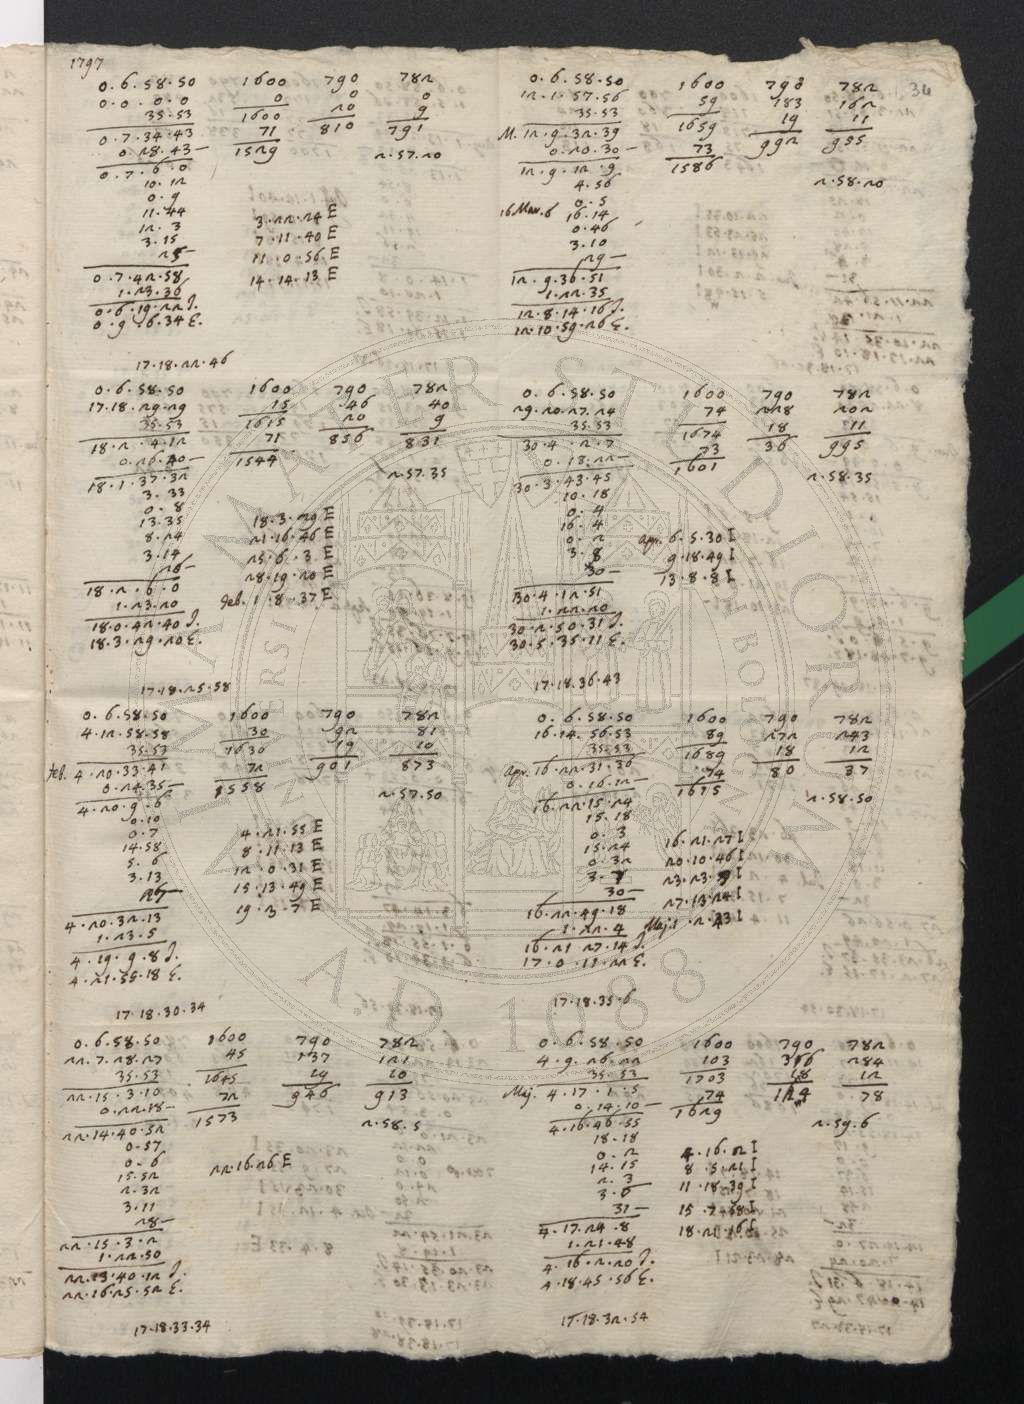 1797
34
0. 6. 58. 50 1600 790 782
0. 0. 0. 0 0 0 0
35. 53 1600 20 9
0. 7. 34. 43 71 810 791
0. 28. 43— 1529
0. 7. 6. 0 2. 57. 20
10. 12
0. 9
11. 44 3. 22. 24 E
12. 3 7. 11. 40 E
3. 15 11. 0. 56 E
25— 14. 14. 13 E
0. 7. 42. 58
1. 23. 36
0. 6. 19. 22 I.
0. 9. 6. 34 E.
17. 18. 22. 46
0. 6. 58. 50 1600 790 782
17. 18. 29. 29 15 46 40
35. 53 1615 20 9
18. 2. 4. 12 71 856 831
0. 26. 40— 1544
18. 1. 37. 32 2. 57. 35
3. 33
0. 8
13. 35 18. 3. 29 E
8. 24 21. 16. 46 E
3. 14 25. 6. 3 E
26— 28. 19. 20 E
18. 2. 6. 0 feb. 1. 8. 37 E
1. 23. 20
18. 0. 42. 40 I.
18. 3. 29. 20 E.
17. 18. 25. 58
0. 6. 58. 50 1600 790 782
4. 12. 58. 58 30 92 81
35. 53 1630 19 10
feb. 4. 20. 33. 41 72 901 873
0. 24. 35— 1558
4. 20. 9. 6 2. 57. 50
0. 10
0. 7
14. 58 4. 21. 55 E
5. 6 8. 11. 13 E
3. 13 12. 0. 31 E
26— 15. 13. 49 E
4. 20. 32. 13 19. 3. 7 E
1. 23. 5
4. 19. 9. 8 I.
4. 21. 55. 18 E.
17. 18. 30. 34
0. 6. 58. 50 1600 790 782
22. 7. 28. 27 45 137 121
35. 53 1645 19 10
22. 15. 3. 10 72 946 913
0. 22. 18— 1573
22. 14. 40. 52 2. 58. 5
0. 57
0. 6
15. 52 22. 16. 26 E
2. 32
3. 11
28—
22. 15. 3. 2
1. 22. 50
22. 13. 40. 12 I.
22. 16. 25. 52 E.
17. 18. 33. 34
0. 6. 58. 50 1600 790 782
12. 1. 57. 56 59 183 162
35. 53 1659 19 11
M. 12. 9. 32. 39 73 992 955
0. 20. 30— 1586
12. 9. 12. 9 2. 58. 20
4. 56
0. 5
16 Mar. 6 16. 14
0. 46
3. 10
29—
12. 9. 36. 51
1. 22. 35
12. 8. 14. 16 I.
12. 10. 59. 26 E.
0. 6. 58. 50 1600 790 782
29. 20. 27. 24 74 228 202
35. 53 1674 18 11
30. 4. 2. 7 73 36 995
0. 18. 22— 1601
30. 3. 43. 45 2. 58. 35
10. 18
0. 4
16. 4
0. 2 apr. 6. 5. 30 I
3. 8 9. 18. 49 I
30— 13. 8. 8 I
30. 4. 12. 51
1. 22. 20
30. 2. 50. 31 I.
30. 5. 35. 11 E.
17. 18. 36. 43
0. 6. 58. 50 1600 790 782
16. 14. 56. 53 89 272 243
35. 53 1689 18 12
apr. 16. 22. 31. 36 74 80 37
0. 16. 12— 1615
16. 22. 15. 24 2. 58. 50
15. 18
0. 3
15. 24 16. 21. 27 I
0. 32 20. 10. 46 I
3. 7 23. 23. 9 I
30— 27. 13. 24 I
16. 22. 49. 18 Maj. 1. 2. 43 I
1. 22. 4
16. 21. 27. 14 I.
17. 0. 11. 22 E.
17. 18. 35. 6
0. 6. 58. 50 1600 790 782
4. 9. 26. 22 103 316 284
35. 53 1703 18 12
Maj. 4. 17. 1. 5 74 124 78
0. 14. 10— 1629
4. 16. 46. 55 2. 59. 6
18. 18
0. 2 4. 16. 2 I
14. 15 8. 5. 21 I
2. 3 11. 18. 39 I
3. 6 15. 7. 58 I
31— 18. 21. 16 I
4. 17. 24. 8
1. 21. 48
4. 16. 2. 20 I.
4. 18. 45. 56 E.
17. 18. 32. 54